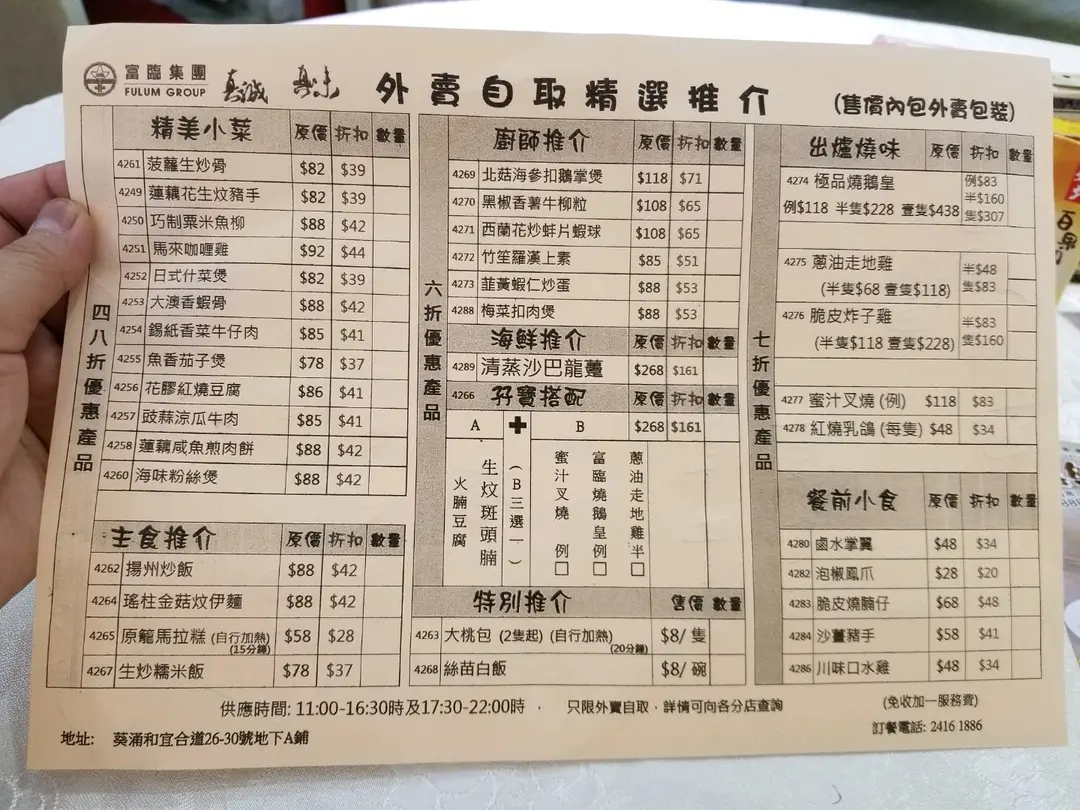 富臨集團
FULUM GROUP
真誠 真味
外賣自取精選推介
(售價內包外賣包裝)
四八折優惠產品
精美小菜 原價 折扣 數量
4261 菠蘿生炒骨 $82 $39
4249 蓮藕花生炆豬手 $82 $39
4250 巧制粟米魚柳 $88 $42
4251 馬來咖喱雞 $92 $44
4252 日式什菜煲 $82 $39
4253 大澳香蝦骨 $88 $42
4254 錫紙香菜牛仔肉 $85 $41
4255 魚香茄子煲 $78 $37
4256 花膠紅燒豆腐 $86 $41
4257 豉蒜涼瓜牛肉 $85 $41
4258 蓮藕咸魚煎肉餅 $88 $42
4260 海味粉絲煲 $88 $42
主食推介 原價 折扣 數量
4262 揚州炒飯 $88 $42
4264 瑤柱金菇炆伊麵 $88 $42
4265 原籠馬拉糕 (自行加熱) $58 $28
(15分鐘)
4267 生炒糯米飯 $78 $37
六折優惠產品
廚師推介 原價 折扣 數量
4269 北菇海參扣鵝掌煲 $118 $71
4270 黑椒香薯牛柳粒 $108 $65
4271 西蘭花炒蚌片蝦球 $108 $65
4272 竹笙羅漢上素 $85 $51
4273 韮黃蝦仁炒蛋 $88 $53
4288 梅菜扣肉煲 $88 $53
海鮮推介 原價 折扣 數量
4289 清蒸沙巴龍躉 $268 $161
4266 孖寶搭配 原價 折扣 數量
A + B $268 $161
生炆斑頭腩
火腩豆腐
(B三選一)
蜜汁叉燒 例
富臨燒鵝皇例
蔥油走地雞半
特別推介 售價 數量
4263 大桃包 (2隻起) (自行加熱) $8/ 隻
(20分鐘)
4268 絲苗白飯 $8/ 碗
七折優惠產品
出爐燒味 原價 折扣 數量
4274 極品燒鵝皇 例$83
半$160
例$118 半隻$228 壹隻$438 隻$307
4275 蔥油走地雞 半$48
(半隻$68 壹隻$118) 隻$83
4276 脆皮炸子雞 半$83
(半隻$118 壹隻$228) 隻$160
4277 蜜汁叉燒 (例) $118 $83
4278 紅燒乳鴿 (每隻) $48 $34
餐前小食 原價 折扣 數量
4280 鹵水掌翼 $48 $34
4282 泡椒鳳爪 $28 $20
4283 脆皮燒腩仔 $68 $48
4284 沙薑豬手 $58 $41
4286 川味口水雞 $48 $34
供應時間: 11:00-16:30時及17:30-22:00時 , 只限外賣自取，詳情可向各分店查詢
(免收加一服務費)
地址: 葵涌和宜合道26-30號地下A鋪
訂餐電話: 2416 1886